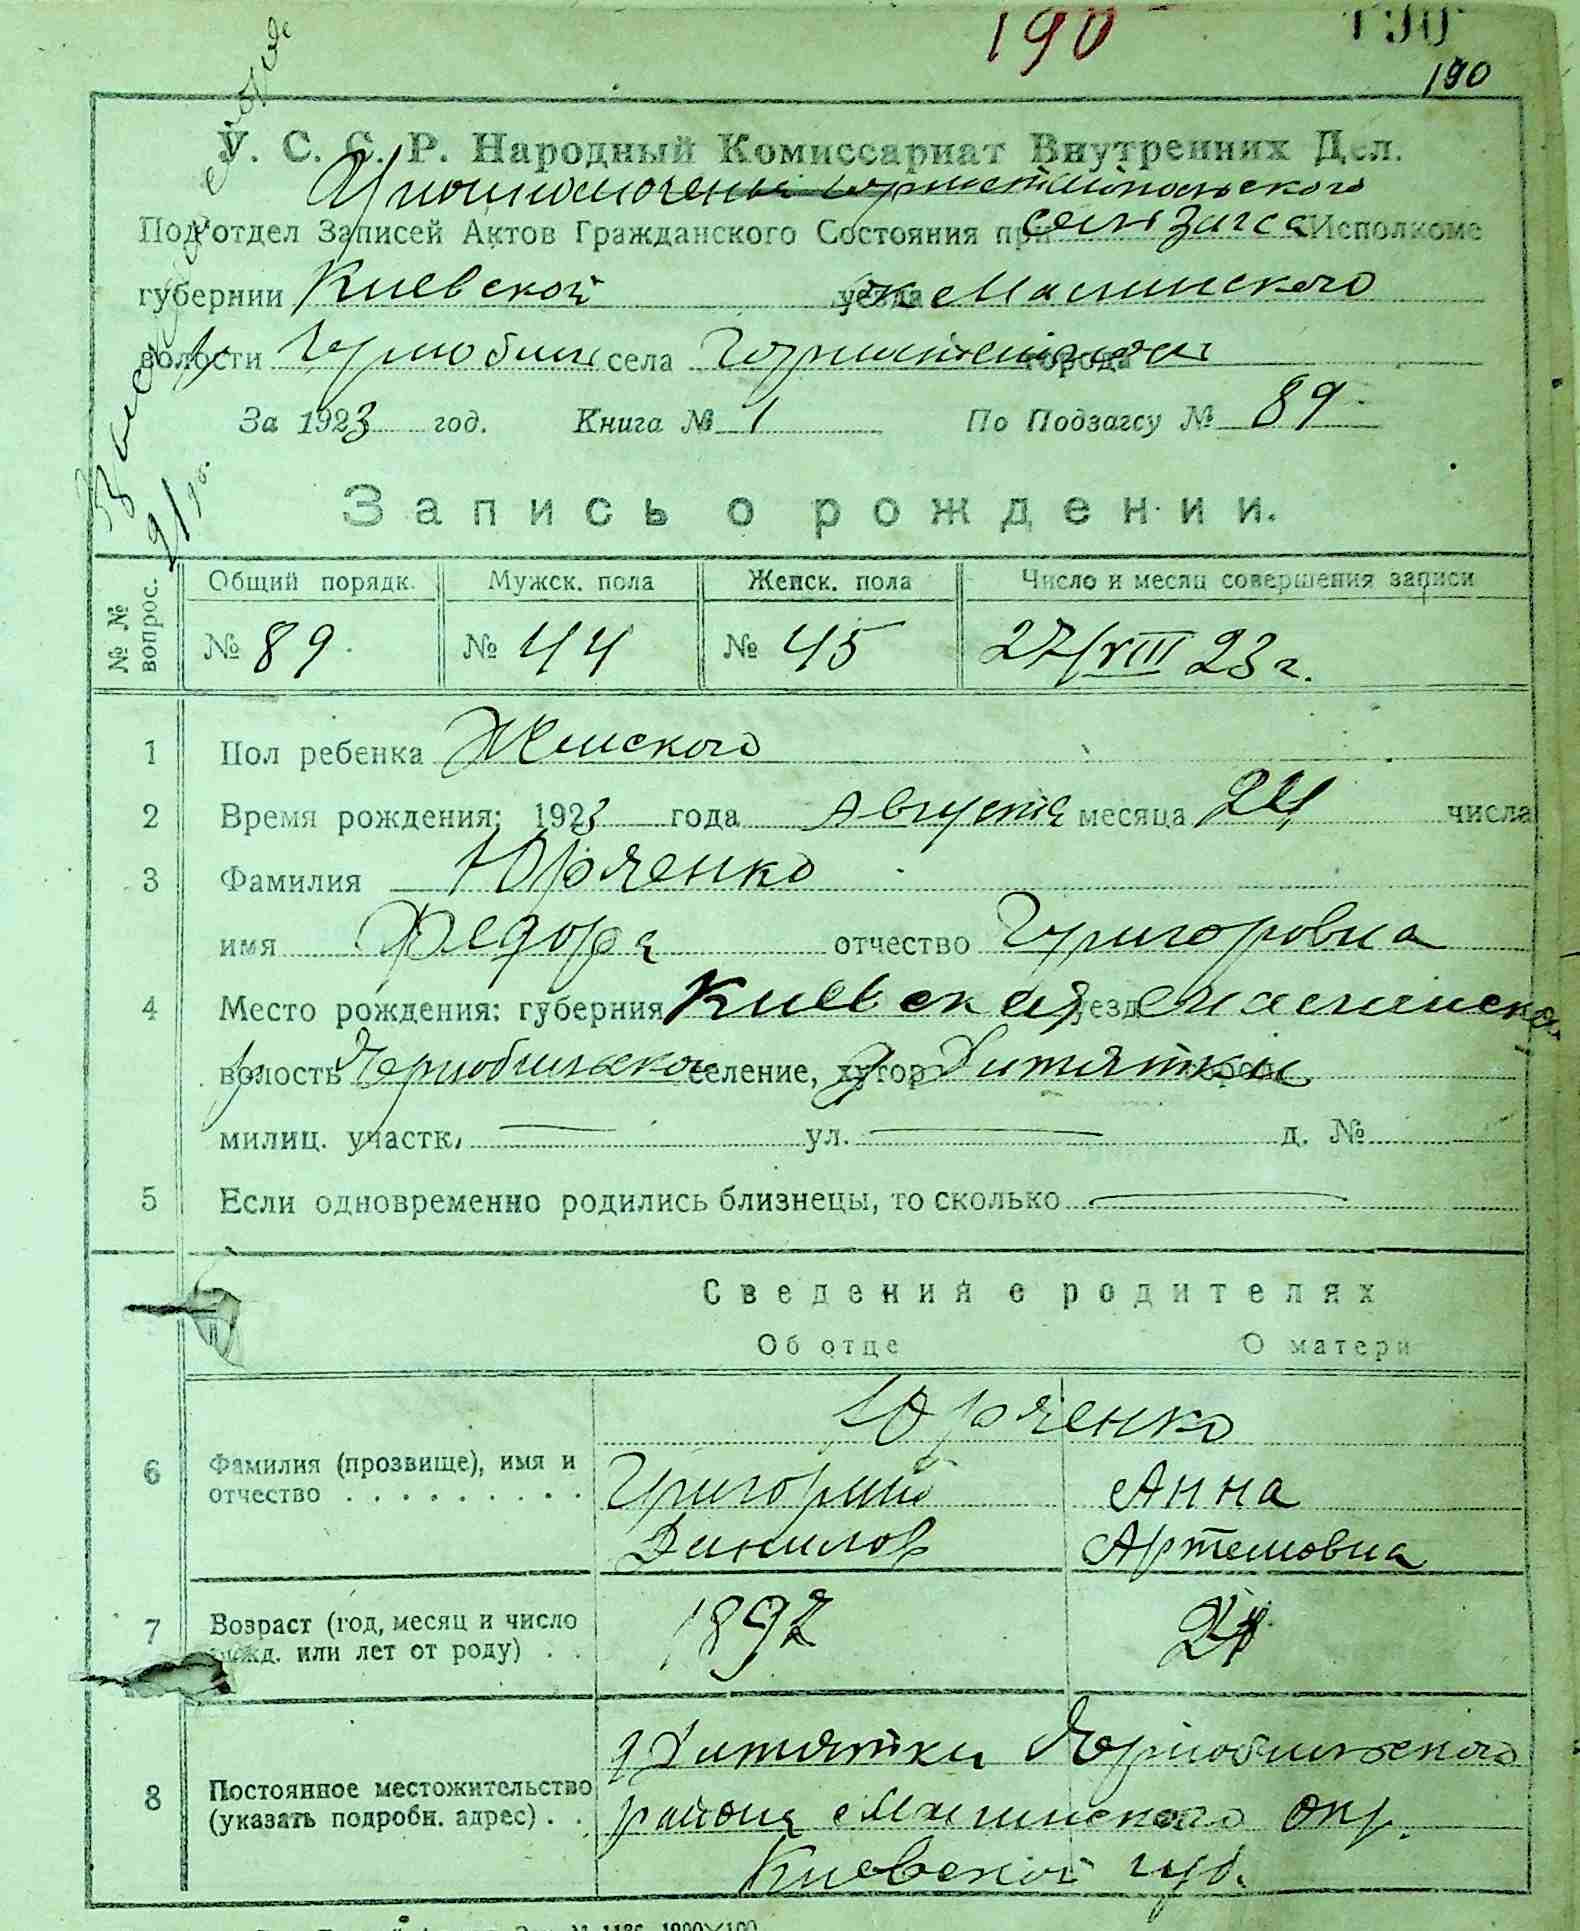 190
190
190
У. С. С. Р. Народный Комиссариат Внутренних Дел.
Подотдел Записей Актов Гражданского Состояния при сельзагса Исполкоме
губернии Киевской уезда Малинского
волости села города
За 1923 год. Книга № 1 По Подзагсу № 89
Запись о рождении.
№ № вопрос. Общий порядк. Мужск. пола Женск. пола Число и месяц совершения записи
№ 89 № 44 № 45 27/VIII 23 г.
1 Пол ребенка Женского
2 Время рождения: 1923 года Августа месяца 24 числа
3 Фамилия Юрченко
имя Федора отчество Григоровна
4 Место рождения: губерния Киевская уезд Малинско
волость Чернобильской селение, хутор Дитятки
милиц. участк. ул. д. №
5 Если одновременно родились близнецы, то сколько
Сведения о родителях
Об отце О матери
Юрченко
6 Фамилия (прозвище), имя и Григорий Анна
отчество . . . . . . . . . . Данилов Артемовна
7 Возраст (год, месяц и число 1897
рожд. или лет от роду) . .
д Дитятки Чернобильского
8 Постоянное местожительство района Малинского окр.
(указать подробн. адрес) . . Киевской губ.